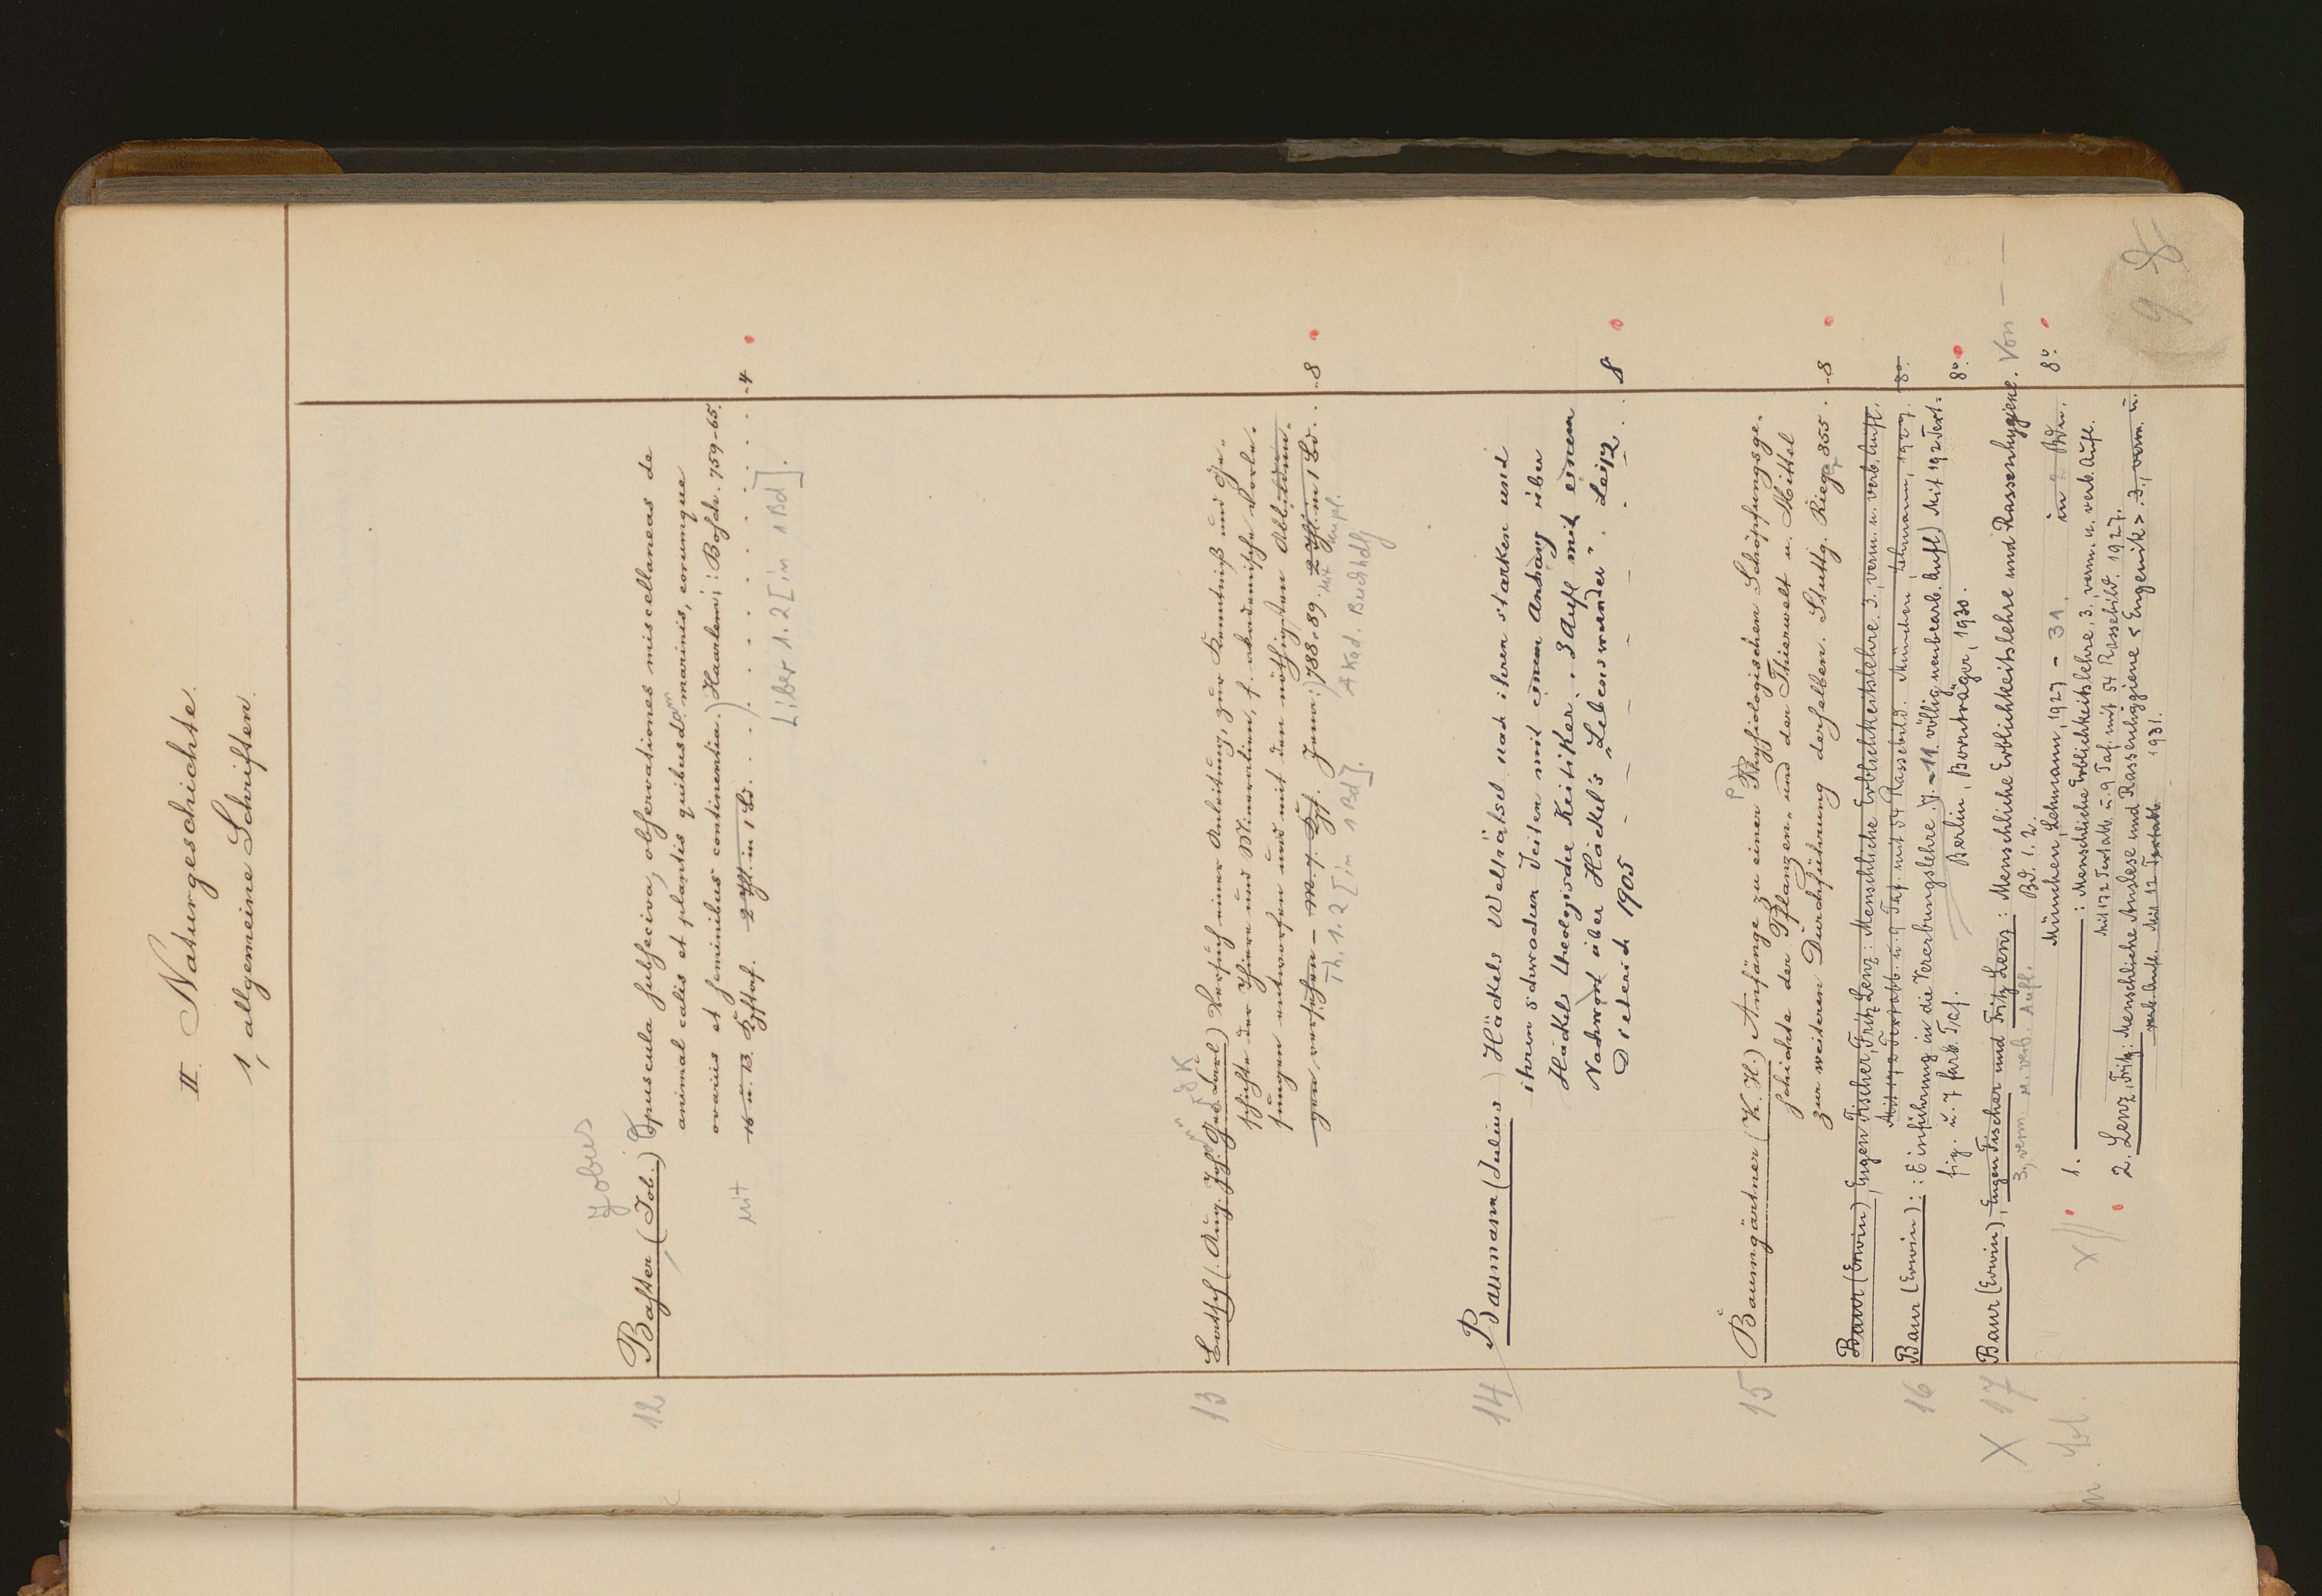 II. Naturgeschichte.
1, allgemeine Schriften.
9 8
Jobus
12 Baster (Job.) Opuscula subseciva, observationes miscellaneas de
animalculis et plantis quibusdam marinis, eorumque
ovariis et seminibus continentia. Haarlemi: Bosch. 759-65.
mit 16 u. 13 Kpftaf. 2 Thl. in 1 Bd. 4
Liber 1.2 [in 1 Bd].
13 Batsch (Aug. Joh. Geo. Carl) Versuch einer Anleitung, zur Kenntniß und Ge-
schichte der Thiere und Mineralien, f. akademische Vorle-
sungen entworfen und mit den nöthigsten Abbildun-
gen versehen - M. 7 Kpf. Jena: 788-89. 2 Thl. in 1 Bd. 8
Th. 1.2 [in 1 Bd]. Akad. Buchhdlg
14 Baumann (Julius) Häckels Welträtsel nach ihren starken und
ihren schwachen Seiten mit einem Anhang über
Häckels theologische Kritiker. 3 Aufl mit einem
Nachwort über Häckel's "Lebenswunder". Leipz.
Dieterich 1905 8
15 Baumgärtner (K. H.) Anfänge zu einer Physiologischen Schöpfungsge-
schichte der Pflanzen- und der Thierwelt u. Mittel
zur weiteren Durchführung derselben. Stuttg. Rieger 855. 8
Baur (Erwin), Eugen Fischer, Fritz Lenz: Menschliche Erblichkeitslehre. 3., verm. u. verb. Aufl.
Mit 172 Textabb. u. 9 Taf. mit 54 Rassebild. München, Lehmann, 1927. 8°.
16 Baur (Erwin): Einführung in die Vererbungslehre. 7.-11. völlig neubearb. Aufl. Mit 192 Text-
fig. u. 7 farb. Taf. Berlin, Borntraeger, 1930. 8°.
X 17 Baur (Erwin), Eugen Fischer und Fritz Lenz: Menschliche Erblichkeitslehre und Rassenhygiene. Von
3., verm. u. verb. Aufl. Bd. 1. 2.
München, Lehmann, 1927-31. in 2 Bdn. 8°.
X 1. : Menschliche Erblichkeitslehre, 3. verm. u. verb. Aufl.
Mit 172 Textabb. u. 9 Taf. mit 54 Rassebild. 1927.
2. Lenz, Fritz: Menschliche Auslese und Rassenhygiene <Eugenik>. 3., verm. u.
verb. Aufl. Mit 12 Textabb. 1931.